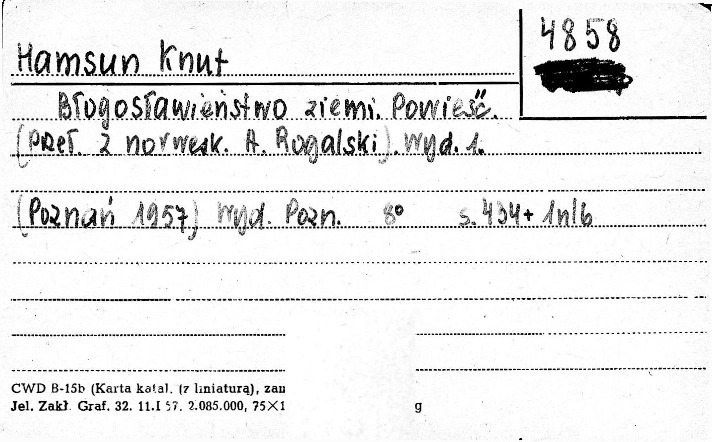 4858
Hamsun Knut
Błogosławieństwo ziemi. Powieść.
(Przeł. z norwesk. A. Rogalski). Wyd. 1.
(Poznań 1957) Wyd. Pozn. 8° s. 434+1nlb
CWD B-15b (Karta katal. (z liniaturą), zam
Jel. Zakł. Graf. 32. 11.I 57. 2.085.000, 75×1 g